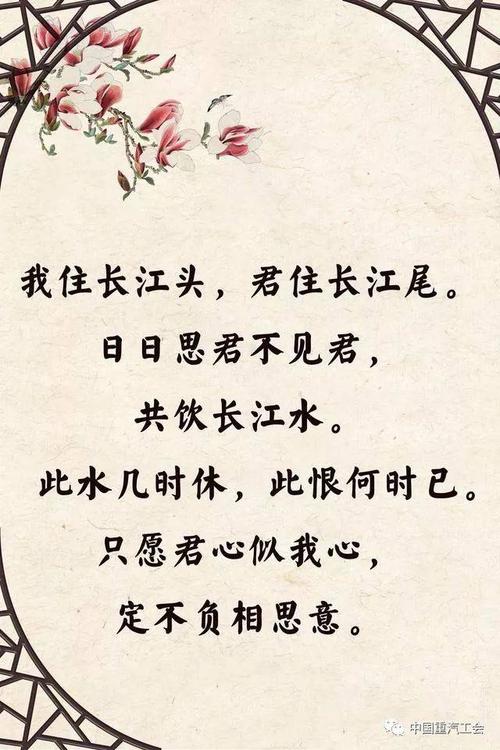 我住长江头，君住长江尾。
日日思君不见君，
共饮长江水。
此水几时休，此恨何时已。
只愿君心似我心，
定不负相思意。
中国重汽工会